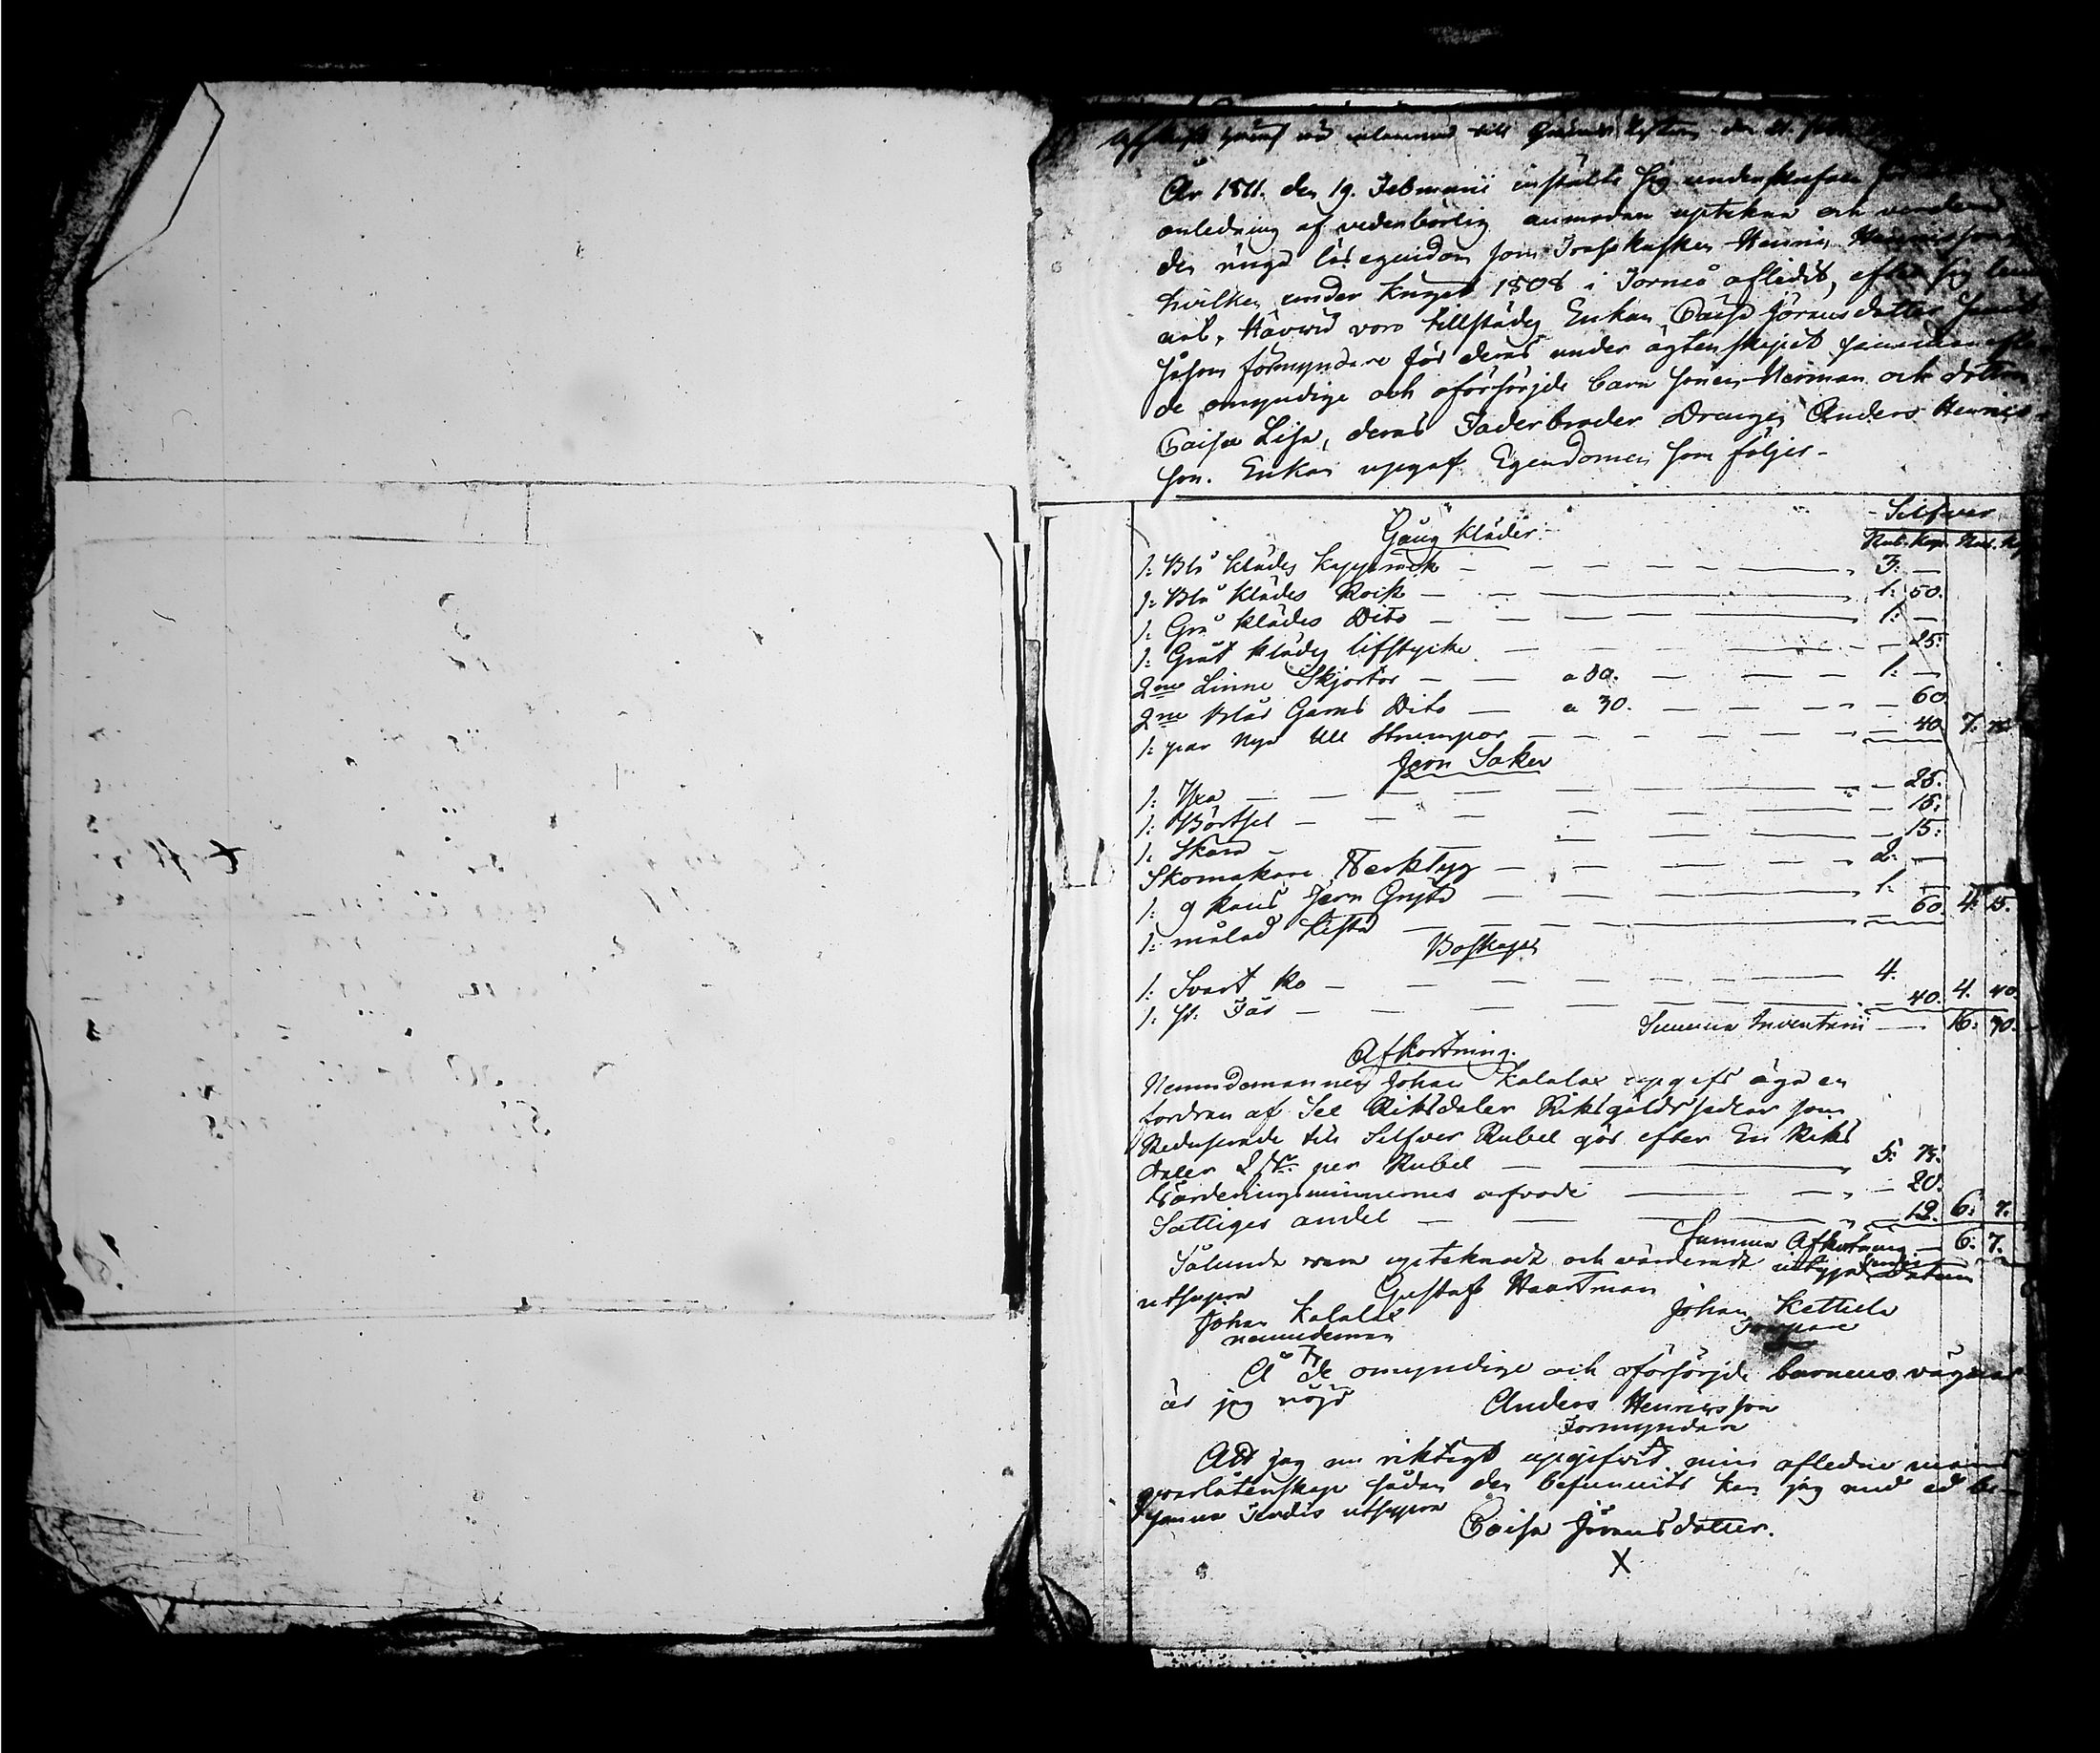 År 1811. den 19. Februarii instälte sig underskrefne
anledning af vederbörlig anmodan uptekna och värdera
den ringa lösegendom som Torpkarlen Henric Henricsson
hvilken under kriget 1808 i Torneå aflidit, efter sig lem
nat, Härwid voro tillstädes Enkan Caisa Jöransdotter samt
såsom förmyndare för deras under ägtenskapet
de omyndige och oförsörjde barn sonen Herman och dottren
Caisa Lisa, deras Faderbroder Drängen Anders Henrics-
son. Enkan upgaf Egendomen som följer-
Silfver
Gång kläder
Rub. Kop. Rub. Kop
1: Blå klädes kapprock — 3: —
1: Blå klädes Rock — 1: 50.
1: Grå klädes Dito — 1: —
1: Grått klädes lifstycke — 25:
2ne Linne Skjortor — a 50. — 1: —
2ne Blår Garns Dito — a 30. — 60
1: par Nya Ull Strumpor — 40 7: 75
Jern Saker
1: Yxa — 25.
1: Börtsel — 15:
1: Skara — 15:
Skomakare Werktyg — 2: —
1: 9 kans Jern Gryta — 1: —
1: målad kista — 60. 4: 15.
Boskapen
1: Svart ko — 4.
1: st: Får — 40. 4. 40
Summa Inventarii — 16: 30.
Afkortning.
Nemndemannen Johan Kalalax upgifs äga en
fordran af Sex Riksdaler Riksgäldssedlar som
Reduserade till Silfver Rubel gör efter En Riks
daler per Rubel — 5: 75:
Värderingsmännernes arfvode — 20:
Fattiges andel — 12. 6: 7.
Summa Afkortning — 6: 7.
Sålunda vara uptecknadt och värderadt intygar Datum
utsupra Gustaf Haartman
Johan Kalalax Johan Kettula
nemndeman Torpare
Å de omyndige och oförsörjde barnens vägnar
är jag nöjd Anders Henricsson
Förmyndare
Att jag nu riktigt upgifvit min aflednе mans
qvarlåtenskap sådan den befunnits kan jag med ed be-
sanna Tendis utsupra
Caisa Jöransdotter.
X